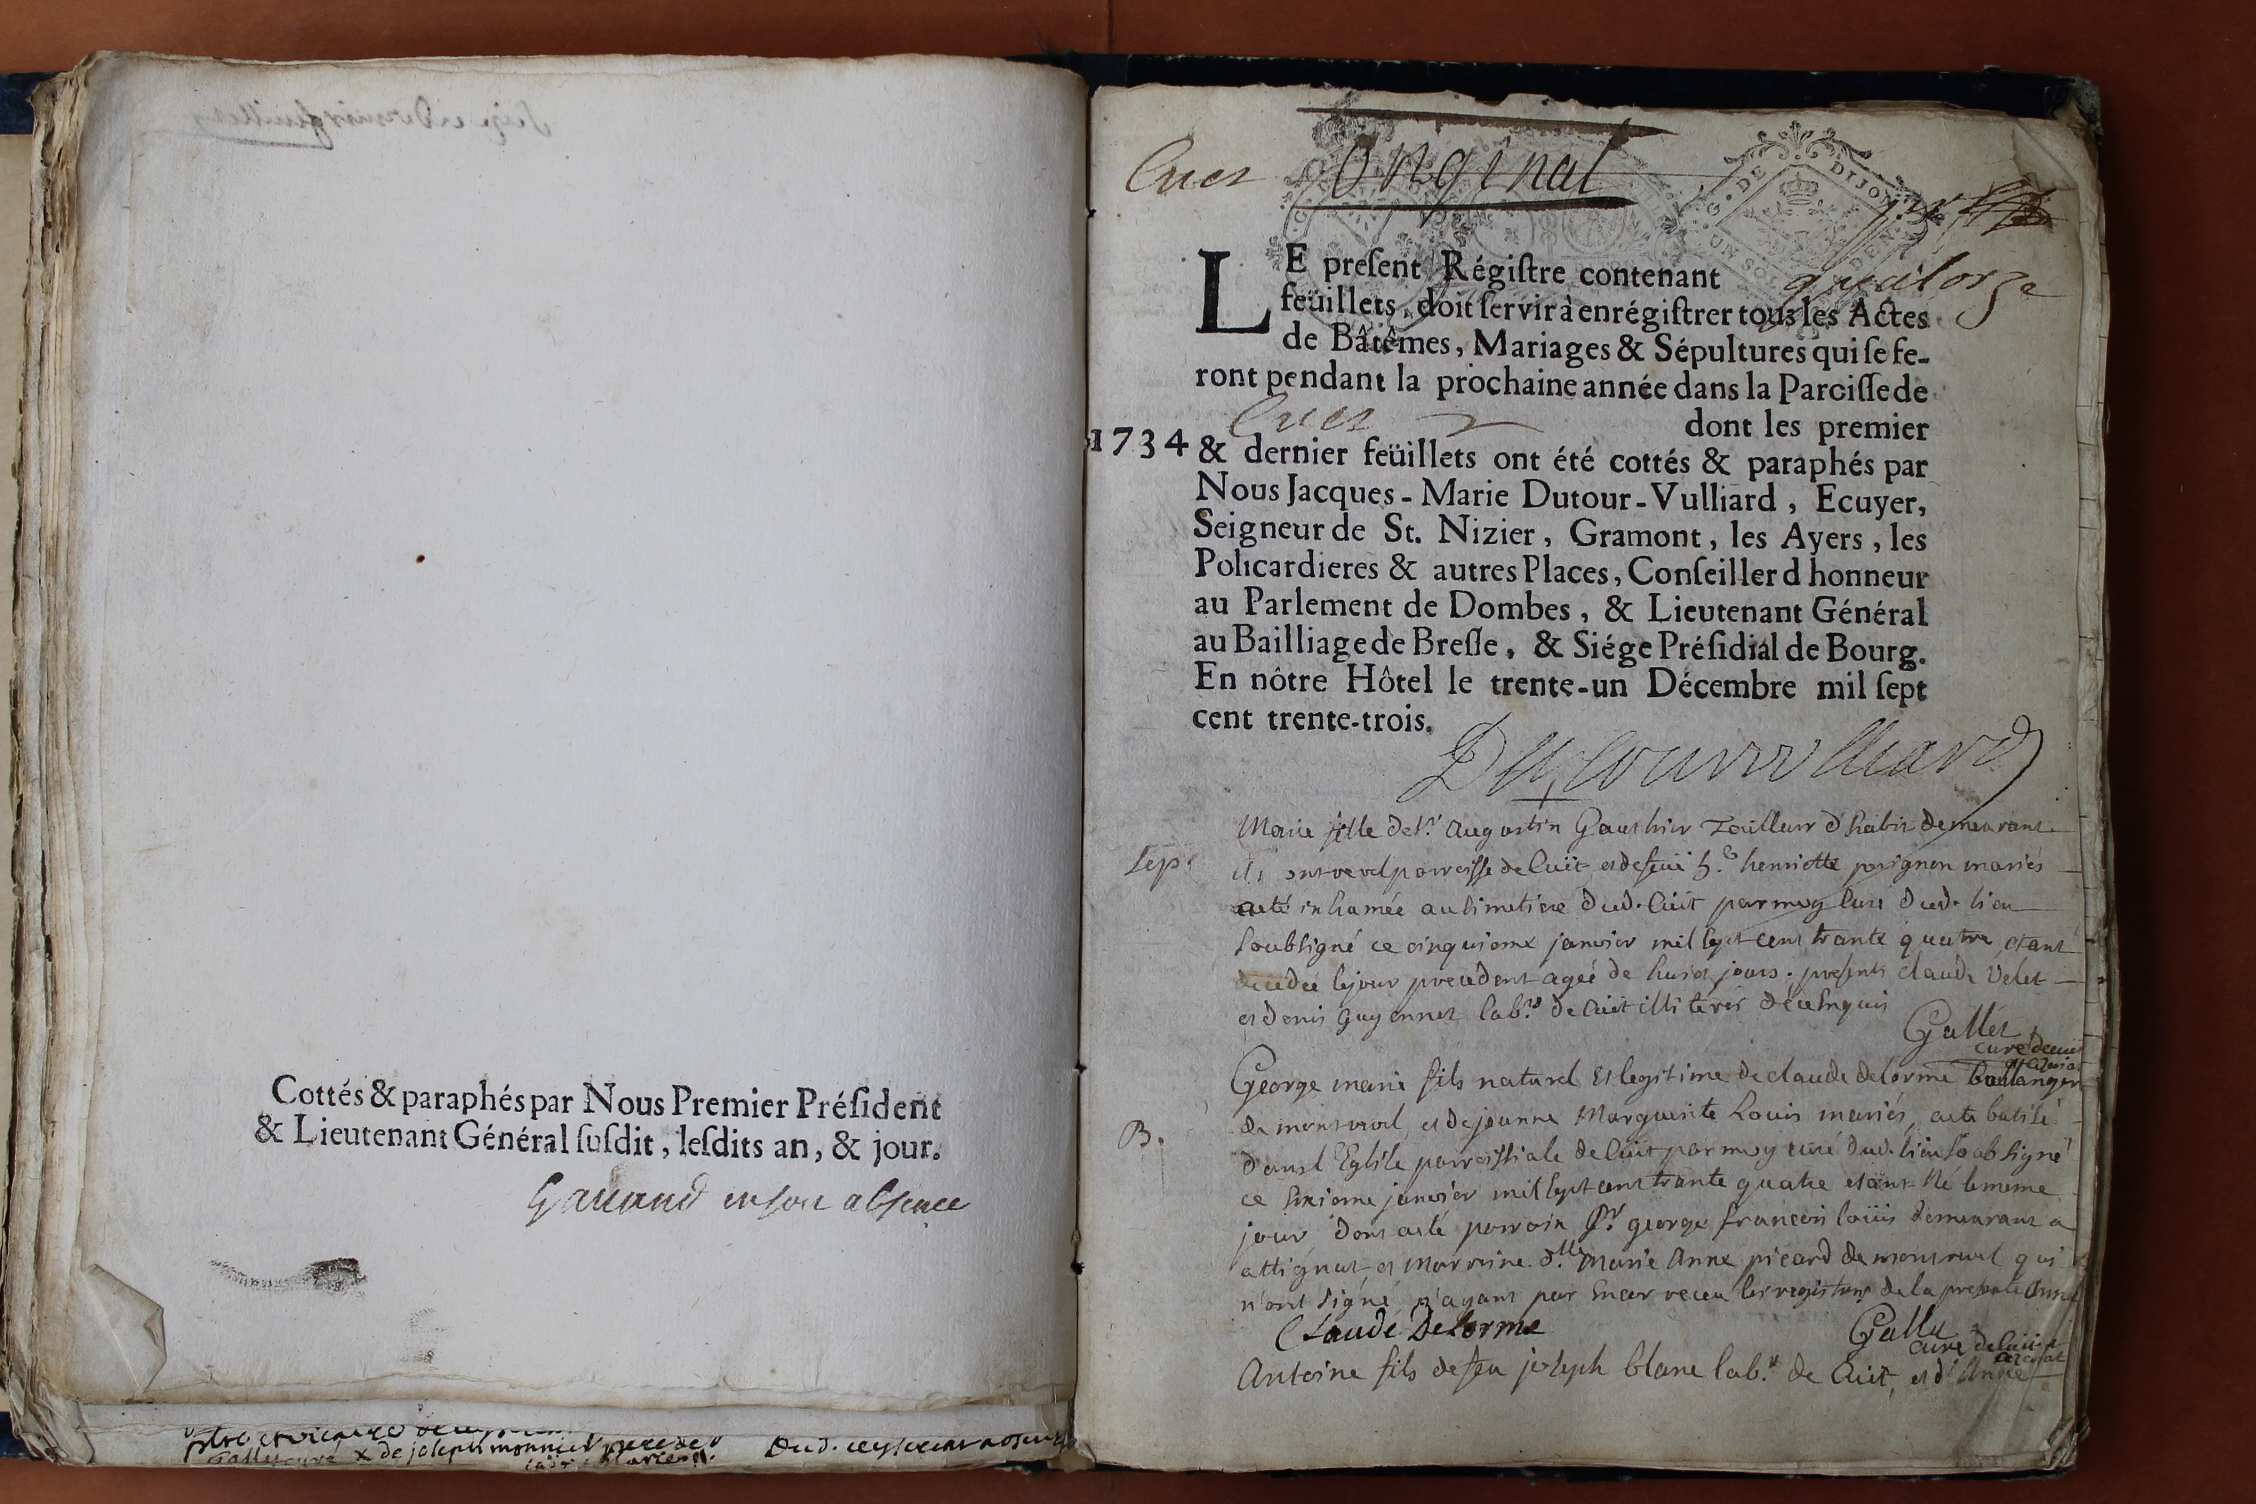 Cottés & paraphés par Nous Premier Président
& Lieutenant Général susdit, lesdits an, & jour.
en son absence
Cuet Original
G. DE DIJON
UN SOL
quatorze
LE present Régistre contenant
feüillets, doit servir à enrégistrer tous les Actes
de Bâtêmes, Mariages & Sépultures qui se fe-
ront pendant la prochaine année dans la Paroisse de
Cuet dont les premier
1734 & dernier feüillets ont été cottés & paraphés par
Nous Jacques-Marie Dutour-Vulliard, Ecuyer,
Seigneur de St. Nizier, Gramont, les Ayers, les
Policardieres & autres Places, Conseiller d honneur
au Parlement de Dombes, & Lieutenant Général
au Bailliage de Bresse, & Siége Présidial de Bourg.
En nôtre Hôtel le trente-un Décembre mil sept
cent trente-trois.
Dutourvulliard
Marie fille de Sr. augustin Gauthier Tailleur d'habit demeurant
Sep. paroisse de Cuit et de henriette maries
a eté inhumée au simetiere dud. Cuit par moy Curé dud. lieu
soubsigné ce cinquieme janvier mil sept cent trante quatre etant
decedée le jour precedent agée de huict jours. presents claude Velet
et denis Guyennet lab.rs de Cuit illiterés de ce enquis
Gallet
curé de cuit
George marie fils naturel et legitime de claude delorme boulanger
B. de montrevel, et de jeanne Marguerite Louis mariés, a eté batisé
dans l'Eglise parroissiale de Cuit par moy curé dud. lieu soubsigné
ce sixieme janvier mil sept cent trante quatre etant Né le meme
jour dont a eté parrain Sr. george francois loüis demeurant a
attignat et marraine d.lle Marie Anne picard de montrevel qui
n'ont signé n'ayant pas encor receu les registres de la presente année
Claude Delorme Gallet
curé de Cuit
Antoine fils de feu joseph blanc lab.r de Cuit, et d'Anne